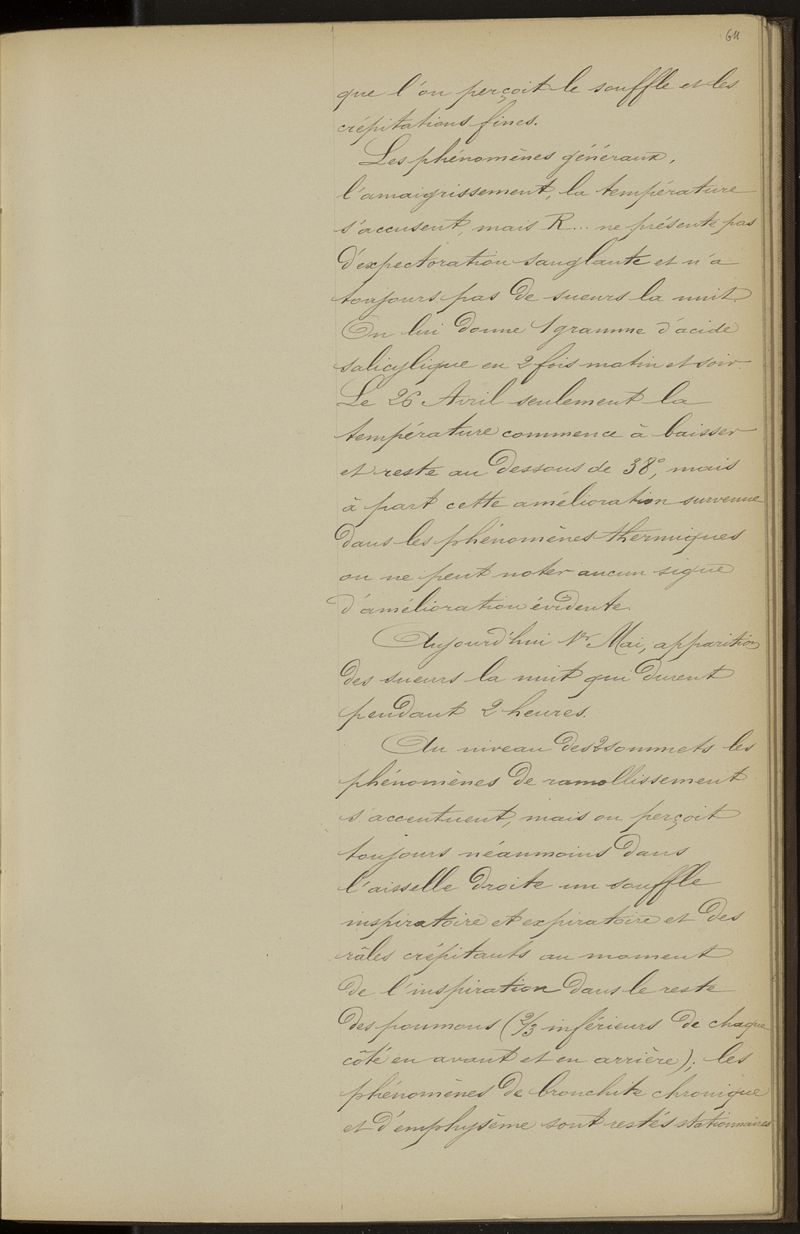 64
que l'on perçoit le souffle et les
crépitations fines.
Les phénomènes généraux,
l'amaigrissement, la température
s'accusent, mais R... ne présente pas
d'expectoration sanglante et n'a
toujours pas de sueurs la nuit.
On lui donne 1 gramme d'acide
salicylique en 2 fois matin et soir.
Le 26 Avril seulement la
température commence à baisser
et reste au dessous de 38°, mais
à part cette amélioration survenue
dans les phénomènes thermiques
on ne peut noter aucun signe
d'amélioration évidente.
Aujourd'hui 1er Mai, apparition
des sueurs la nuit qui durent
pendant 2 heures.
Au niveau des 2 sommets les
phénomènes de ramollissement
s'accentuent, mais on perçoit
toujours néanmoins dans
l'aisselle droite un souffle
inspiratoire et expiratoire et des
râles crépitants au moment
de l'inspiration dans le reste
des poumons (2/3 inférieurs de chaque
côté en avant et en arrière); les
phénomènes de bronchite chronique
et d'emphysème sont restés stationnaires